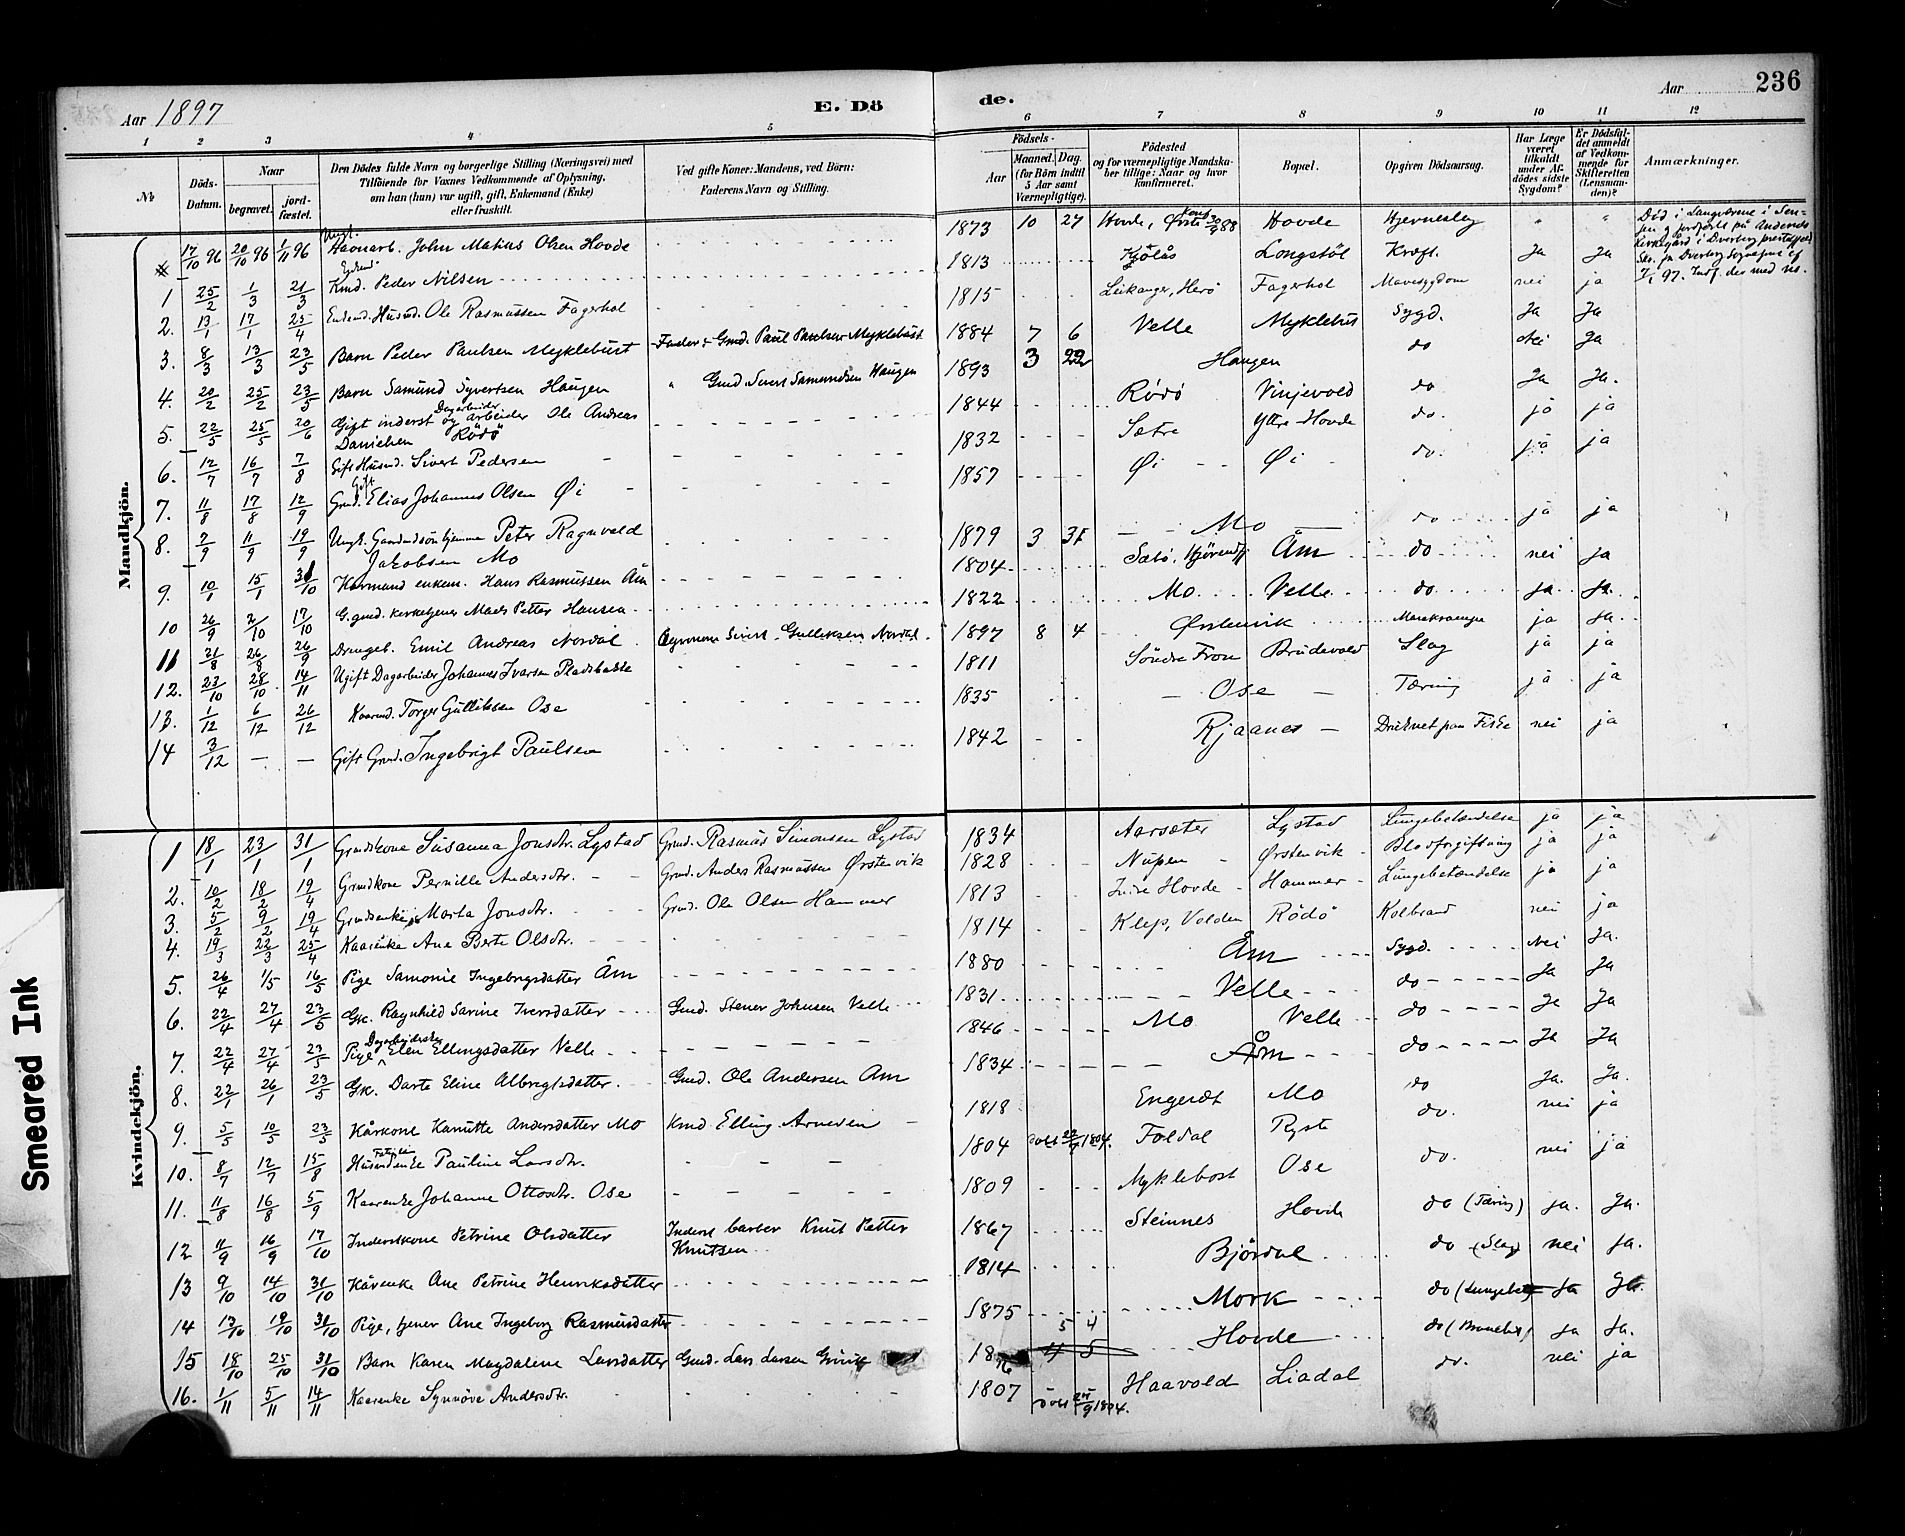 236
Aar 1897
E. Döde.
Aar
1 2 3 4 5 6 7 8 9 10 11 12
№
Döds-Datum.
Naar
begravet.
jord-fæstet.
Den Dödes fulde Navn og borgerlige Stilling (Næringsvei) med Tilföiende for Voxnes Vedkommende af Oplysning, om han (hun) var ugift, gift, Enkemand (Enke) eller fraskilt.
Ved gifte Koner: Mandens, ved Börn: Faderens Navn og Stilling.
Födsels-
Aar
Maaned. Dag.
(for Börn indtil 5 Aar samt Værnepligtige).
Födested og for værnepligtige Mandskaber tillige: Naar og hvor konfirmeret.
Bopæl.
Opgiven Dödsaarsag.
Har Læge været tilkaldt under Afdödes sidste Sygdom?
Er Dödsfaldet anmeldt af Vedkommende for Skifteretten (Lensmanden)?
Anmærkninger.
Mandkjön.
17/10 96 20/10 96 1/11 96 Ungk. John Matius Olsen Hovde 1873 10 27 Hovde, Hovde Hjerneslag " "
1 25/2 1/3 21/3 Peder Nilsen 1813 Longstöl Kræft. Ja Ja
2. 13/1 17/1 25/4 Husmd. Ole Rasmussen Fagerhol 1815 Leikanger, Herö Fagerhol Mavesygdom nei ja
3. 8/3 13/3 23/5 Barn Peder Paulsen Myklebust Fader: Gmd. Paul Paulsen Myklebust 1884 7 6 Velle Myklebust Sygd. Ja Ja
4. 20/2 25/2 23/5 Barn Samund Syvertsen Haugen " Gmd. Sivert Samundsen Haugen 1893 3 22 Haugen do Nei Ja
5. 22/5 25/5 20/6 Gift inderst og Dagarbeider Ole Andreas Danielsen Rödö 1844 Rödö Vinjevold do Ja Ja.
6. 12/7 16/7 7/8 Gift Husmd. Sivert Pedersen 1832 Sætre Ytre Hovde do. ja ja
7. 11/8 17/8 12/9 Gift Grmd. Elias Johannes Olsen Øi 1857 Øi Øi do. ja ja
8. 7/9 11/9 19/9 Ungk. Gaardmdsön hjemme Peter Ragnvald Jakobsen Mo 1879 3 31 Mo do ja ja
9. 10/1 15/1 31/10 Kårmand enkem. Hans Rasmussen Åm 1804 Åm do nei ja
10 26/9 2/10 17/10 G. gmd. kirketjener Mads Petter Hansen 1822 Mo Velle do ja Ja.
11 21/8 26/8 26/9 Drengeb. Emil Andreas Nordal Sivert Gulliksen Nordal 1897 8 4 Ørstenvik Mavekrampe ja Ja.
12. 23/10 28/10 14/11 Ugift Dagarbeider Johannes Ivarsen 1811 Söndre Fron Brudevold Slag ja ja
13. 1/12 6/12 26/12 Kaarmd. Torger Gulliksen Ose 1835 Ose Tæring ja ja
14 3/12 — — Gift Grmd. Ingebrigt Paulsen 1842 Rjaanes Druknet paa Fiske nei ja
Kvindekjön.
1 18/1 23/1 31/1 Grmdskone Susanna Jonsdtr. Lystad Grmd. Rasmus Simonsen Lystad 1834 Aarsæter Lystad Lungebetændelse ja ja
2. 10/2 18/2 19/4 Grmdkone Pernille Andersdtr. Grmd. Anders Rasmussen Ørstenvik 1828 Nupen Ørstenvik Blodforgiftning ja ja
3. 5/2 9/2 19/4 Grmdsenke Marta Jonsdtr. Grmd. Ole Olsen Hammer 1813 Indre Hovde Hammer Lungebetændelse ja ja
4. 19/3 22/3 25/4 Kaarenke Ane Berte Olsdtr. 1814 Klep, Volden Rödö Kolbrand nei ja
5. 26/4 1/5 16/5 Pige Samonie Ingebrigsdatter Åm 1880 Åm Sygd. Nei Ja.
6. 22/4 27/4 23/5 Gk. Ragnhild Sarine Iversdatter Gmd. Stener Johnsen Velle 1831 Velle do Ja Ja
7. 22/4 27/4 23/5 Pige Dagarbeiderske Elen Ellingsdatter Velle 1846 Mo Velle do Ja Ja
8. 22/1 26/1 23/5 Gk. Dorte Eline Albregtsdatter. Gmd. Ole Andersen Åm 1834 Åm do Ja Ja
9. 5/5 10/5 23/5 Kårkone Kanutte Andersdatter Mo Kmd. Elling Arnesen 1818 Engeset Mo do Ja. Ja.
10. 8/7 12/7 15/8 Husmdenke Pauline Larsdtr. 1804 döbt 22/7 1804. Foldal Ryste do. nei ja
11. 11/8 16/8 5/9 Kaarenke Johanne Ottosdtr. Ose 1809 Myklebost Ose do. nei ja
12 11/9 16/9 17/10 Inderstkone Petrine Olsdatter Inderst barber Knut Petter Knutsen 1867 Steinnes Hovde do (Tæring) ja. Ja.
13 9/10 14/10 31/10 Kårenke Ane Petrine Henriksdatter 1814 Björdal do (Slag) nei ja.
14 13/10 19/10 31/10 Pige, tjener Ane Ingeborg Rasmusdatter 1875 Mork do ja Ja.
15 18/10 25/10 31/10 Barn Karen Magdalene Larsdatter Gmd. Lars Larsen 18 5 4 Hovde do ja Ja.
16. 1/11 5/11 14/11 Kaarenke Synnöve Andersdtr. 1807 döbt 1804. Haavold Liadal do. nei ja
Smeared Ink